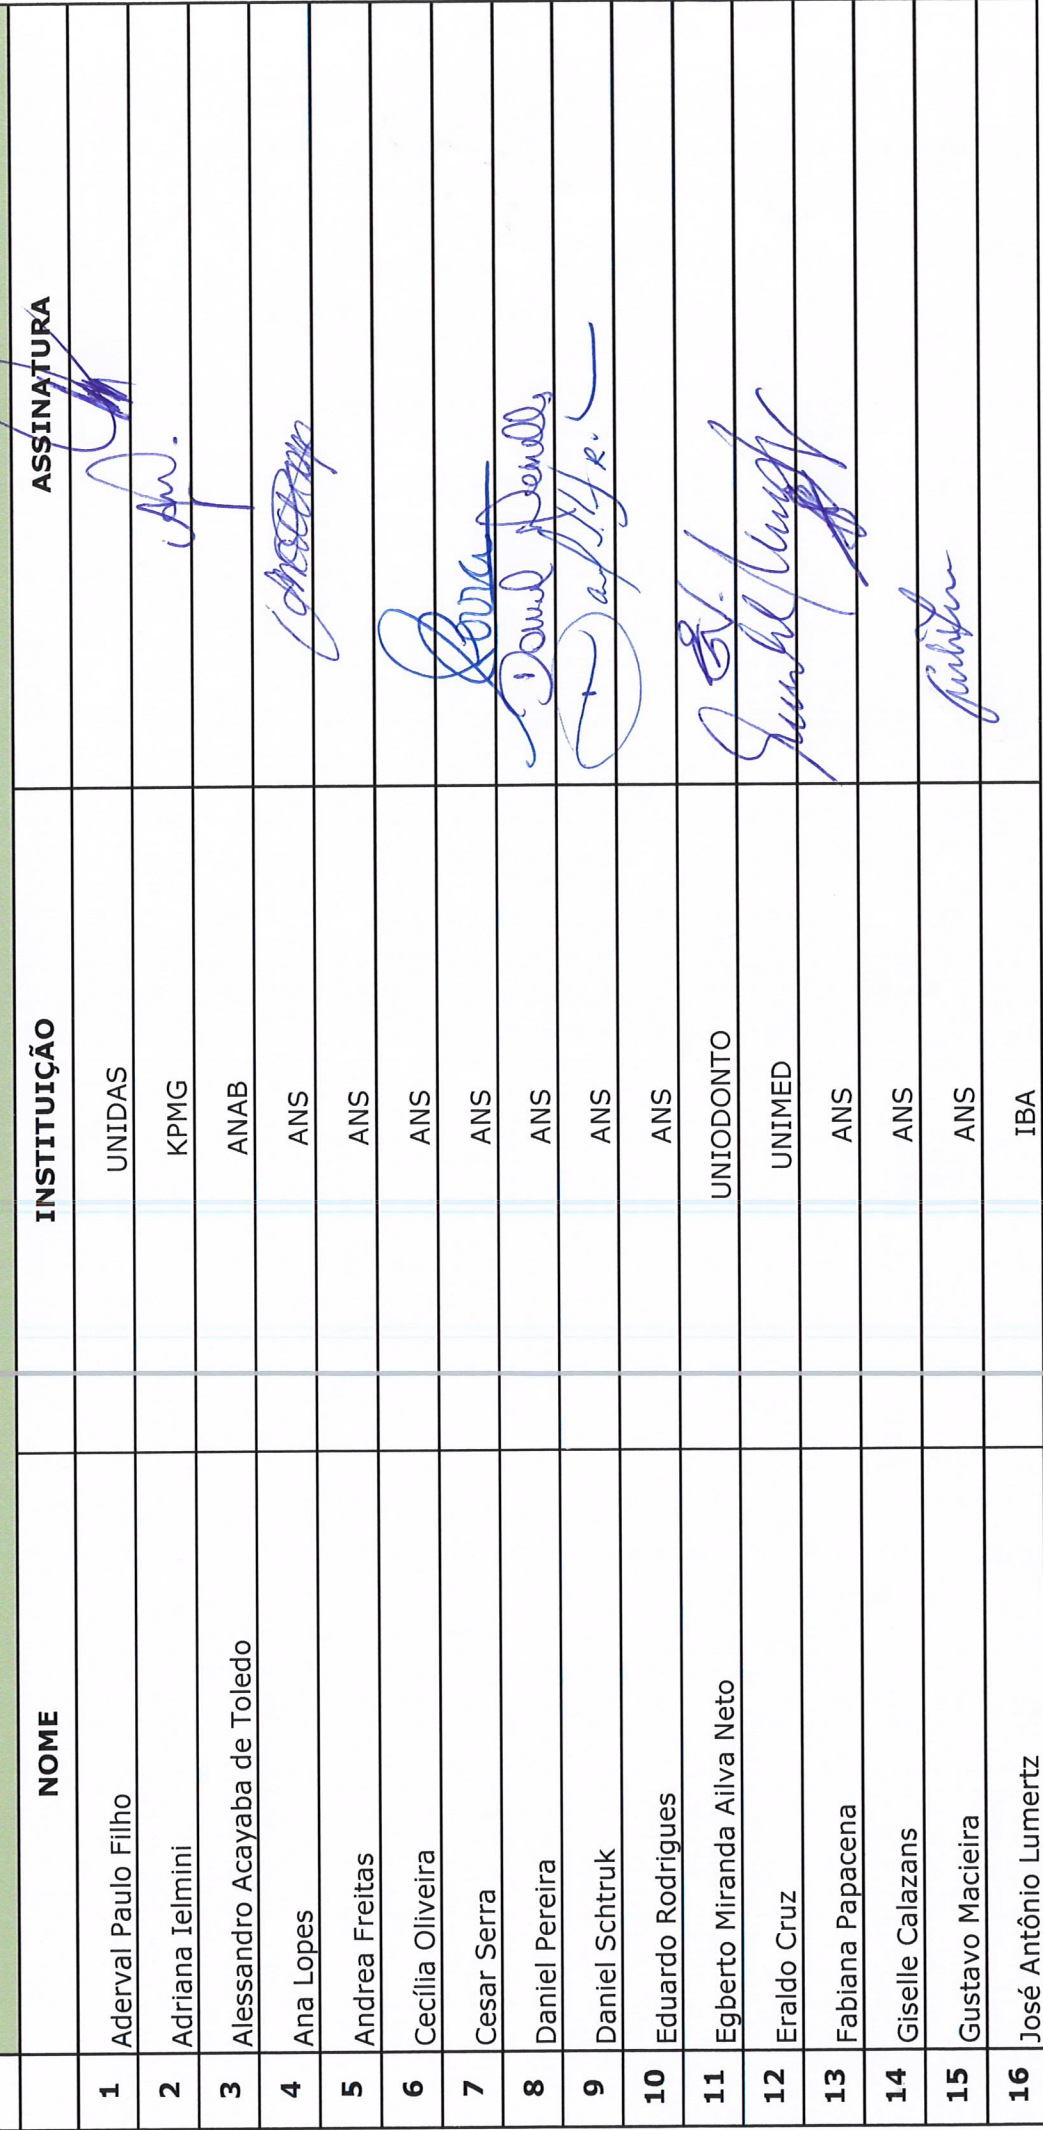 NOME INSTITUIÇÃO ASSINATURA
1 Aderval Paulo Filho UNIDAS
2 Adriana Ielmini KPMG
3 Alessandro Acayaba de Toledo ANAB
4 Ana Lopes ANS
5 Andrea Freitas ANS
6 Cecília Oliveira ANS
7 Cesar Serra ANS
8 Daniel Pereira ANS Daniel
9 Daniel Schtruk ANS
10 Eduardo Rodrigues ANS
11 Egberto Miranda Ailva Neto UNIODONTO
12 Eraldo Cruz UNIMED
13 Fabiana Papacena ANS
14 Giselle Calazans ANS
15 Gustavo Macieira ANS
16 José Antônio Lumertz IBA